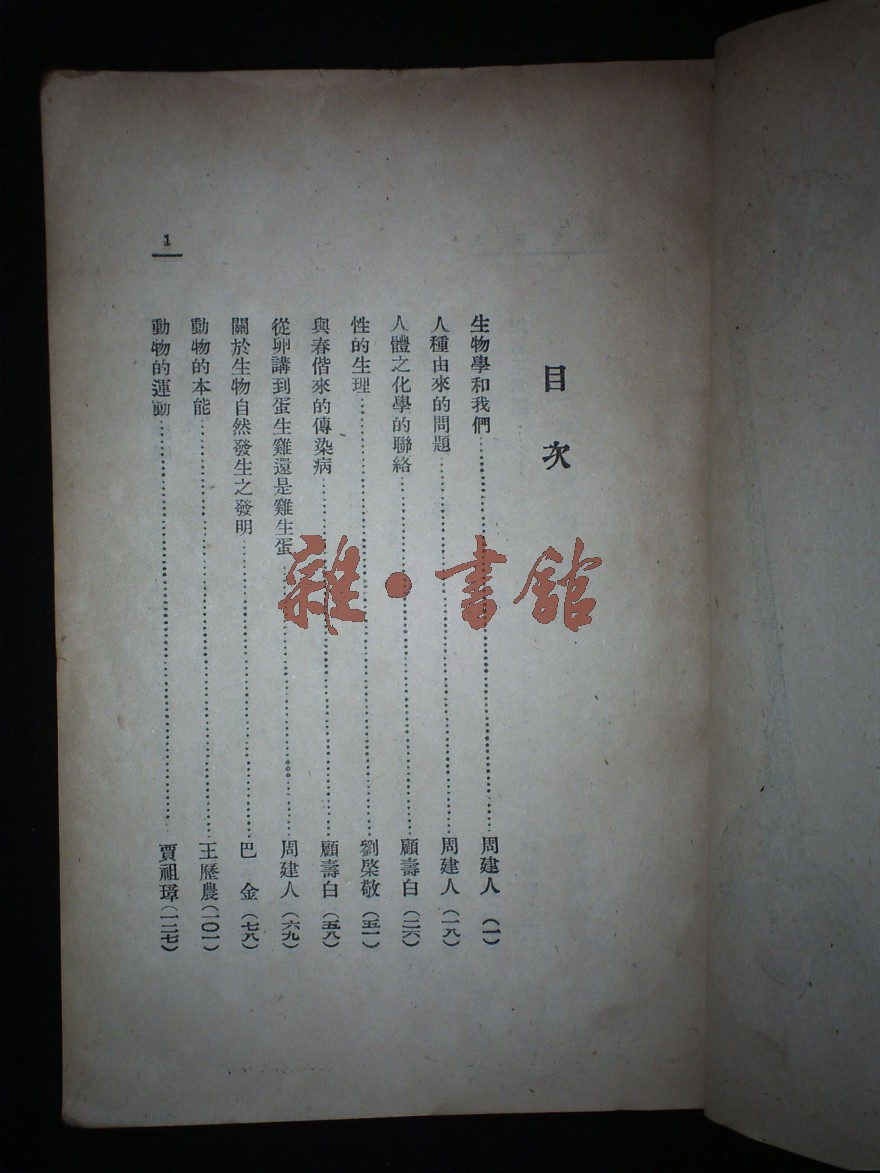 目次
生物學和我們………周建人（一）
人種由來的問題………周建人（一八）
人體之化學的聯絡………顧壽白（二六）
性的生理………劉棨敬（五一）
與春偕來的傳染病………顧壽白（五八）
從卵講到蛋生雞還是雞生蛋………周建人（六九）
關於生物自然發生之發明………巴金（七八）
動物的本能………王歷農（一〇一）
動物的運動………賈祖璋（一二七）
1
雜·書館